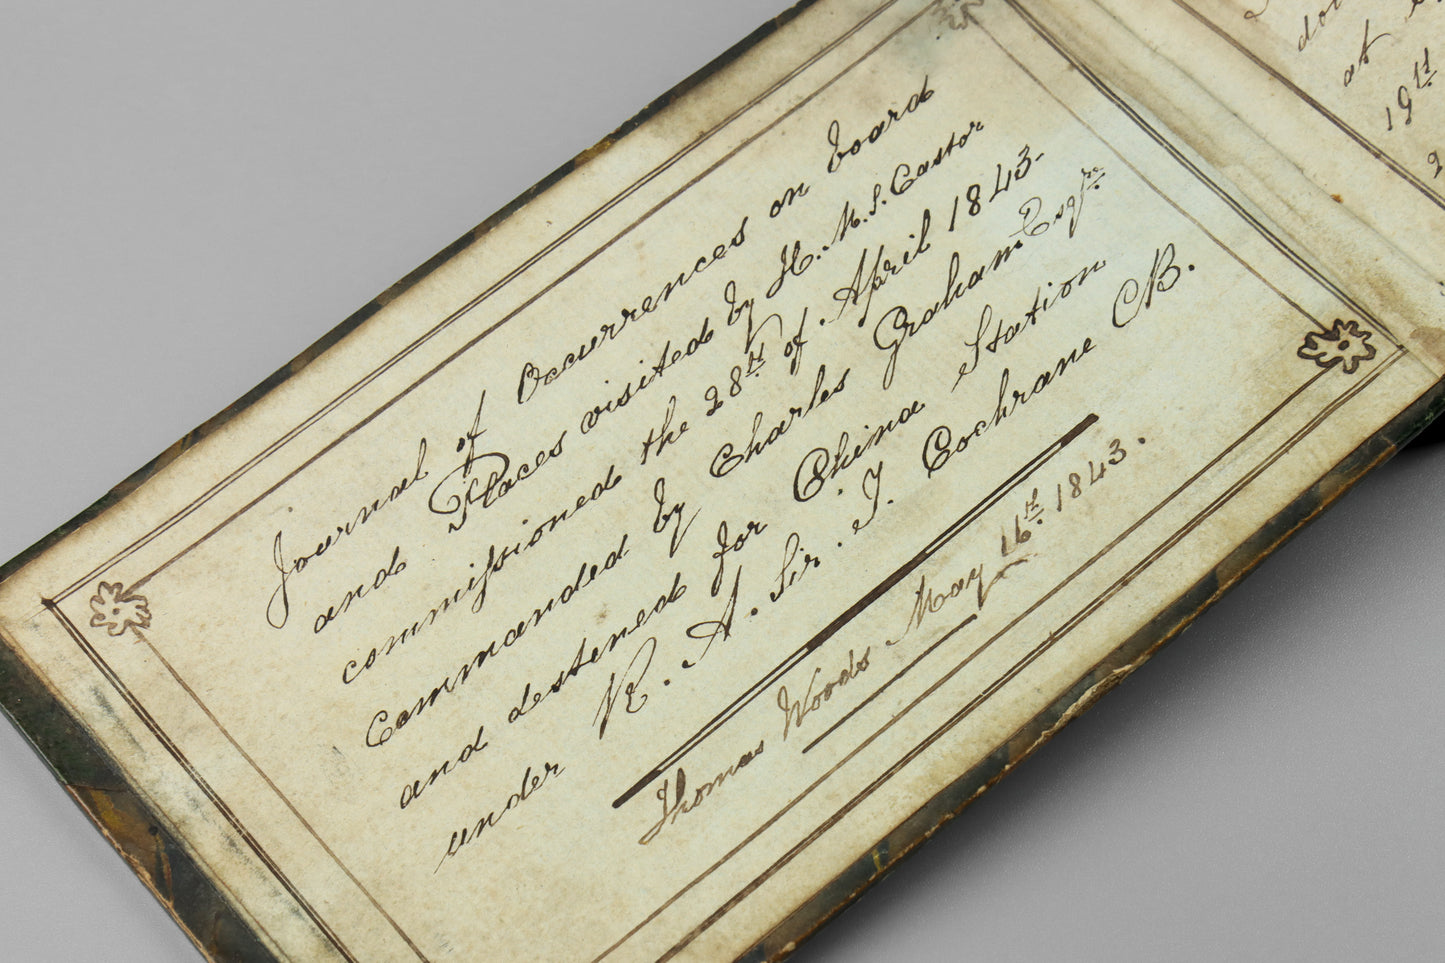 Journal of Occurrences on board
and Places visited by H. M. S. Castor
commissioned the 28th of April 1843.
Commanded by Charles Graham Esqre
and destened for China Station
under R. A. Sir. T. Cochrane CB.
Thomas Woods May 16th 1843.
at
19th
2